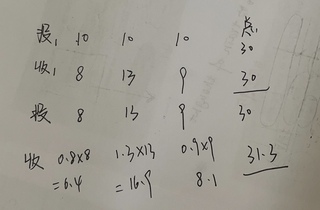 投₁ 10 10 10 总₁ 30
收₁ 8 13 9 30
投 8 13 9 30
收 0.8×8 1.3×13 0.9×9 31.3
=6.4 =16.9 8.1